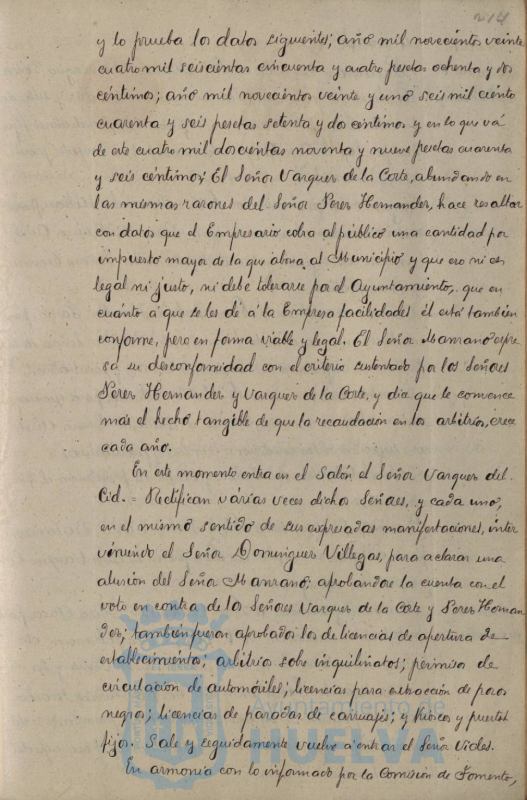 214
y lo prueba los datos siguientes; año mil novecientos veinte
cuatro mil seiscientas cincuenta y cuatro pesetas ochenta y dos
céntimos; año mil novecientos veinte y uno seis mil ciento
cuarenta y seis pesetas setenta y dos céntimos y en lo que vá
de este cuatro mil doscientas noventa y nueve pesetas cuarenta
y seis céntimos; El Señor Vazquez de la Corte, abundando en
las mismas razones del Señor Perez Hernandez, hace resaltar
con datos que el Empresario cobra al público una cantidad por
impuesto mayor de la que abona al Municipio y que eso ni es
legal ni justo, ni debe tolerarse por el Ayuntamiento, que en
cuánto á que se les dé á la Empresa facilidades él está también
conforme, pero en forma viable y legal. El Señor Manzano expre
sa su desconformidad con el criterio sustentado por los Señores
Perez Hernandez y Vazquez de la Corte, y dice que le convence
más el hecho tangible de que la recaudación en los arbitrios, crece
cada año.
En este momento entra en el Salón el Señor Vazquez del
Cid. = Rectifican várias veces dichos Señores, y cada uno,
en el mismo sentido de sus expresadas manifestaciones, inter
viniendo el Señor Dominguez Villegas, para aclarar una
alusión del Señor Manzano; aprobandose la cuenta con el
voto en contra de los Señores Vazquez de la Corte y Perez Hernan
dez; también fueron aprobados los de licencias de apertura de
establecimientos; arbitrios sobre inquilinatos; permiso de
circulación de automóviles; licencias para extracción de pozos
negros; licencias de paradas de carruajes; y kioscos y puestos
fijos. Sale y seguidamente vuelve a entrar el Señor Vides.
En armonía con lo informado por la Comisión de Fomento,
Ayuntamiento de
HUELVA